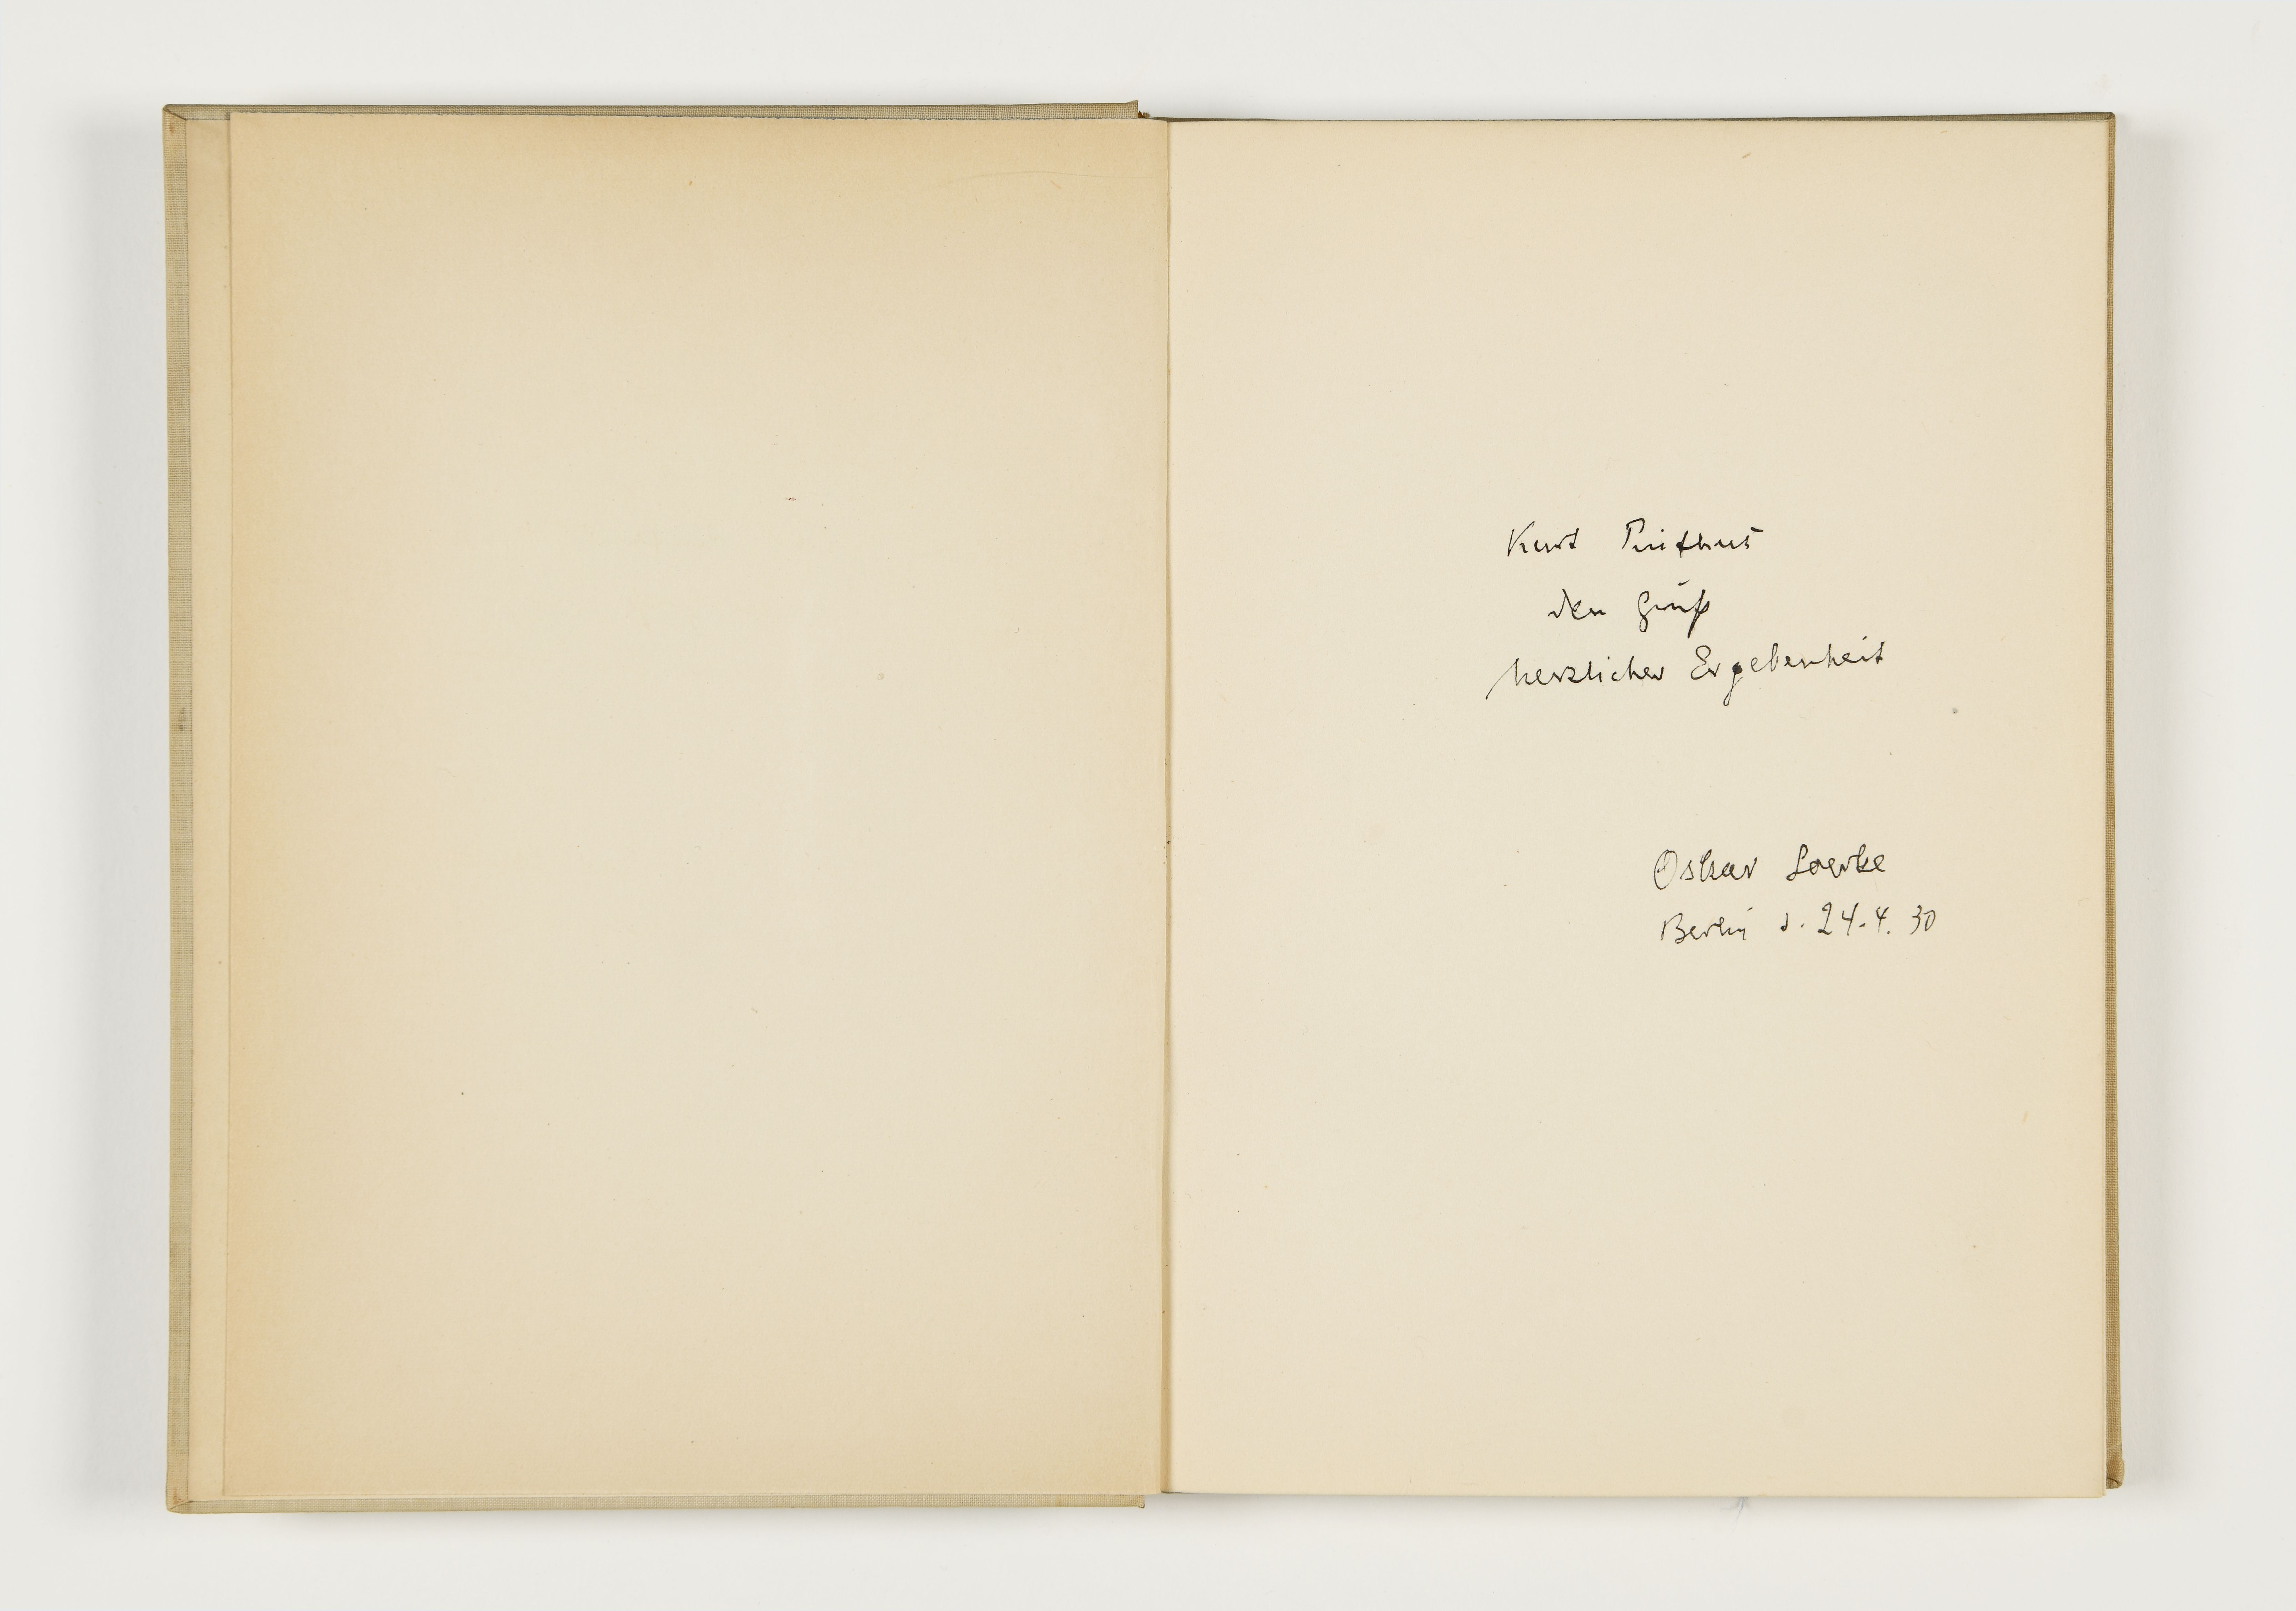 Kurt Pinthus
den Gruß
herzlicher Ergebenheit
Oskar Loerke
Berlin d. 24.4.30